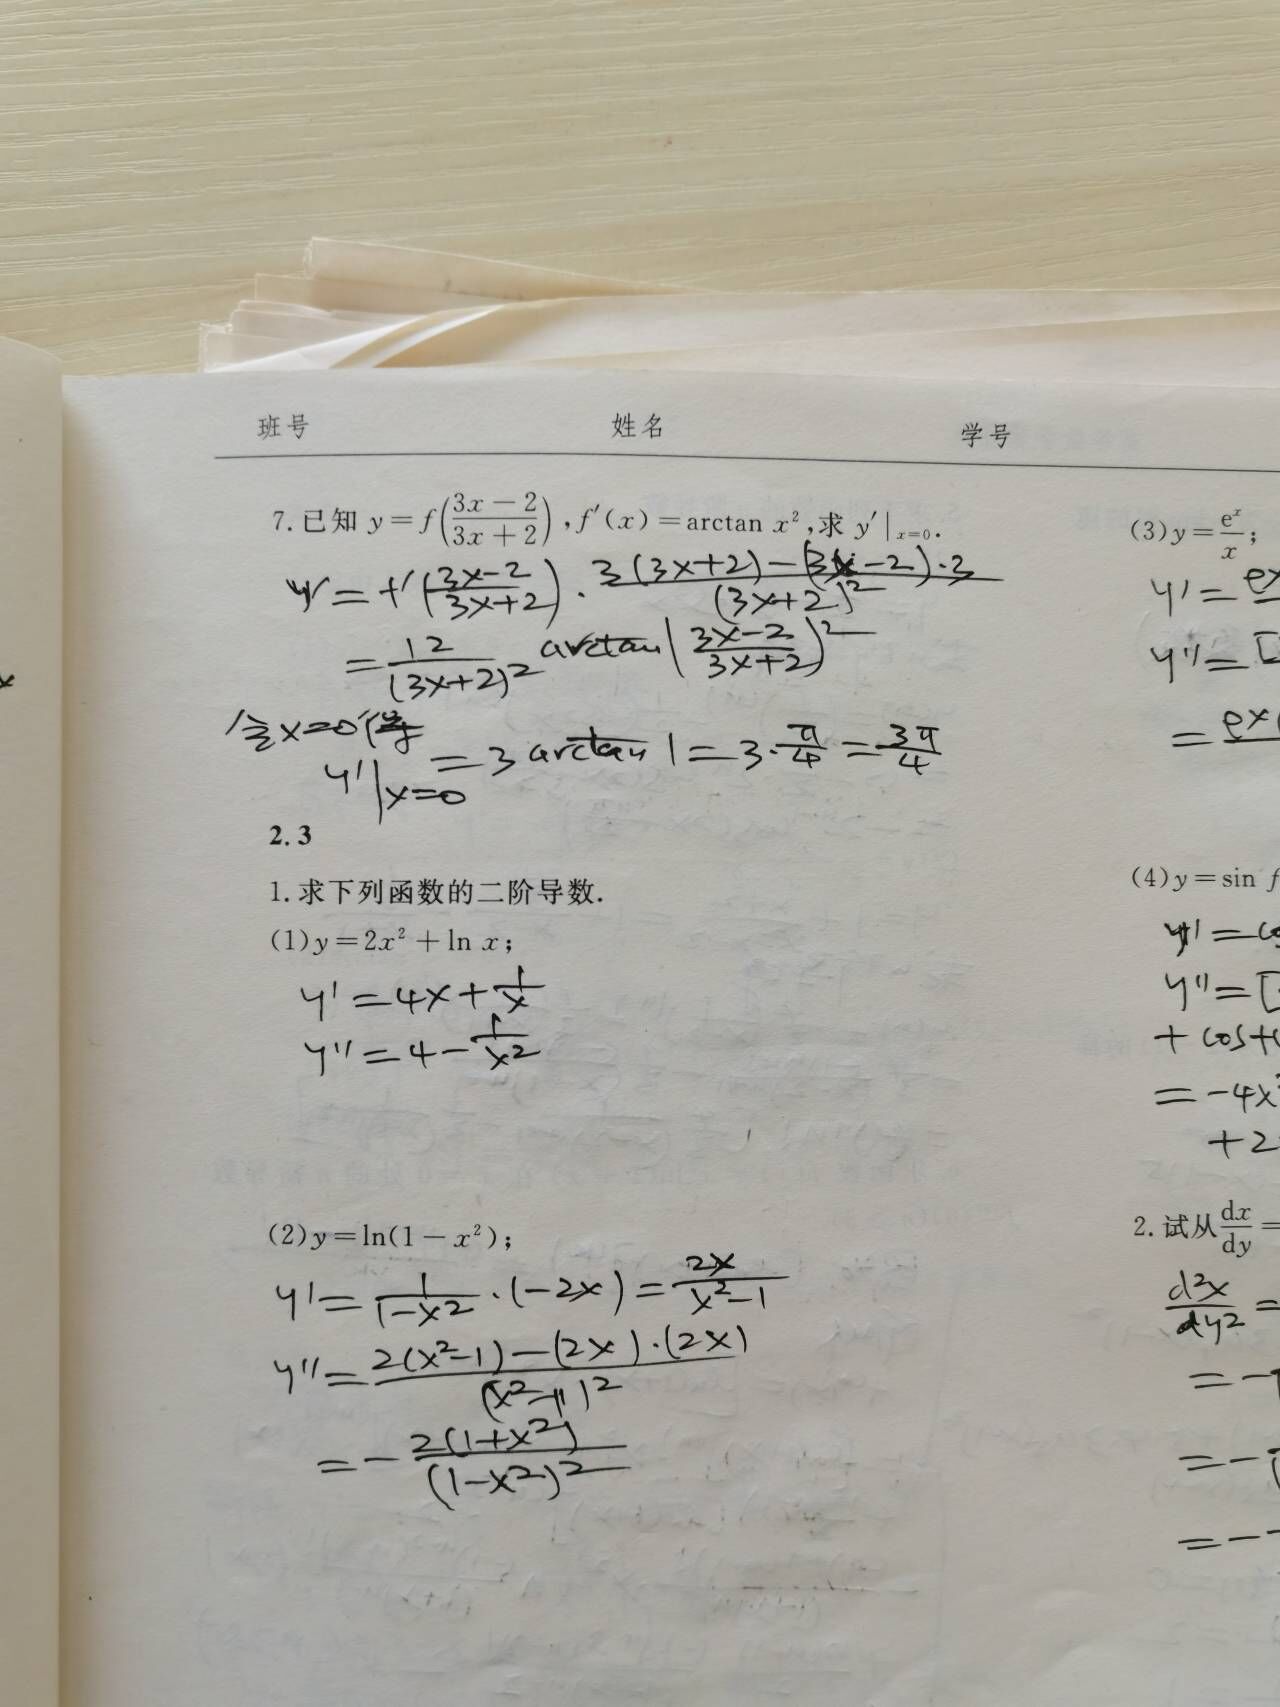 班号 姓名 学号
7.已知 y=f((3x-2)/(3x+2)),f′(x)=arctan x²,求 y′|x=0.
y′=f′((3x-2)/(3x+2))·(3(3x+2)-(3x-2)·3)/(3x+2)²
=12/(3x+2)² arctan((3x-2)/(3x+2))²
令x=0得
y′|x=0 =3 arctan 1=3·π/4=3π/4
2.3
1.求下列函数的二阶导数.
(1)y=2x²+ln x;
y′=4x+1/x
y″=4-1/x²
(2)y=ln(1-x²);
y′=1/(1-x²)·(-2x)=2x/(x²-1)
y″=(2(x²-1)-(2x)·(2x))/(x²-1)²
=-2(1+x²)/(1-x²)²
(3)y=eˣ/x;
y′=
y″=[
=
(4)y=sin f
y′=
y″=[
+
=-4x
+2
2.试从dx/dy=
d²x/dy²=
=-
=-
=-